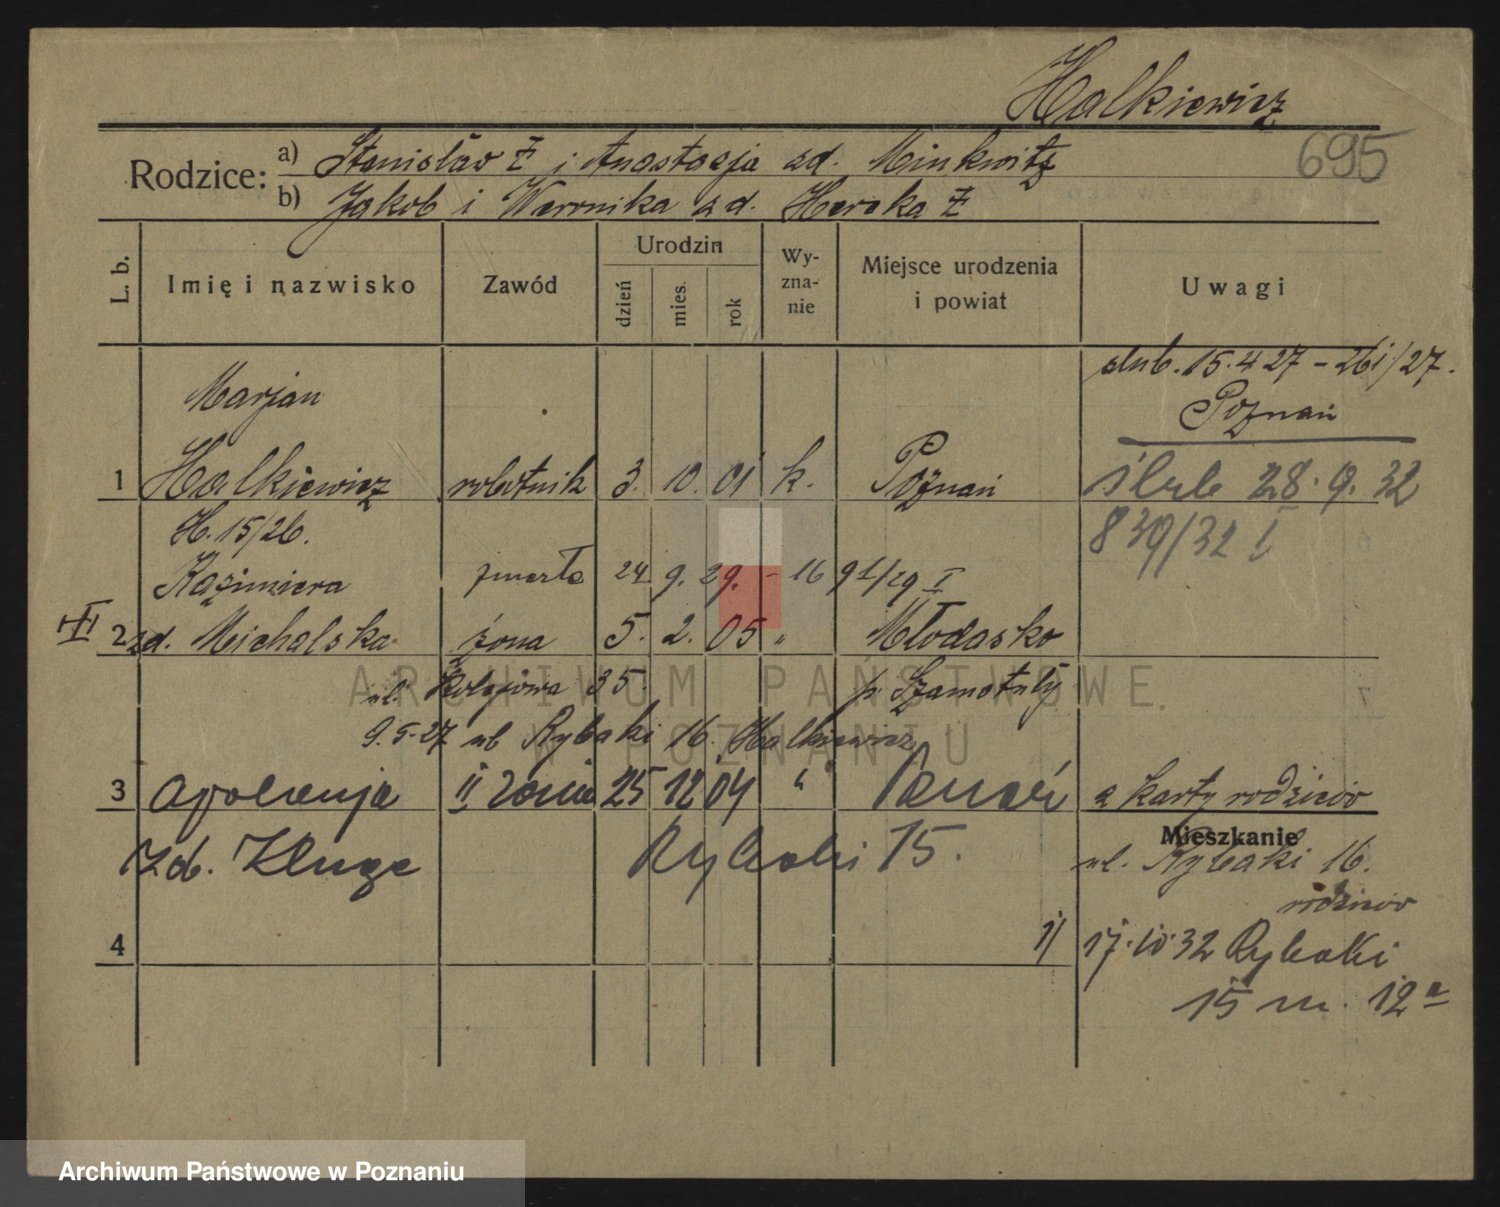 Halkiewicz
695
Rodzice: a) Stanisław i Anastazja zd. Minkwitz
b) Jakob i Weronika zd.
L. b. Imię i nazwisko Zawód Urodzin dzień mies. rok Wyznanie Miejsce urodzenia i powiat Uwagi
ślub. 15.4.27 - 261/27.
Poznań
Marjan
1 Halkiewicz robotnik 3. 10. 01 k. Poznań ślub 28.9.32
H. 15/26. 839/32 I
Kazimiera zmarła 24. 9. 29. - 16 91/29 I
2 zd. Michalska żona 5. 2. 05 " Młodasko
ul. Kolejowa 35. p. Szamotuły
9.5.27 ul Rybaki 16. Halkiewicz
3 Apolonja II żona 25 12 04 " Poznań z karty rodziców
zd. Kluge Rybaki 15.
Mieszkanie
ul. Rybaki 16.
rodziców
4 1/ 17.10.32 Rybaki
15 m. 12a
ARCHIWUM PAŃSTWOWE
W POZNANIU
Archiwum Państwowe w Poznaniu